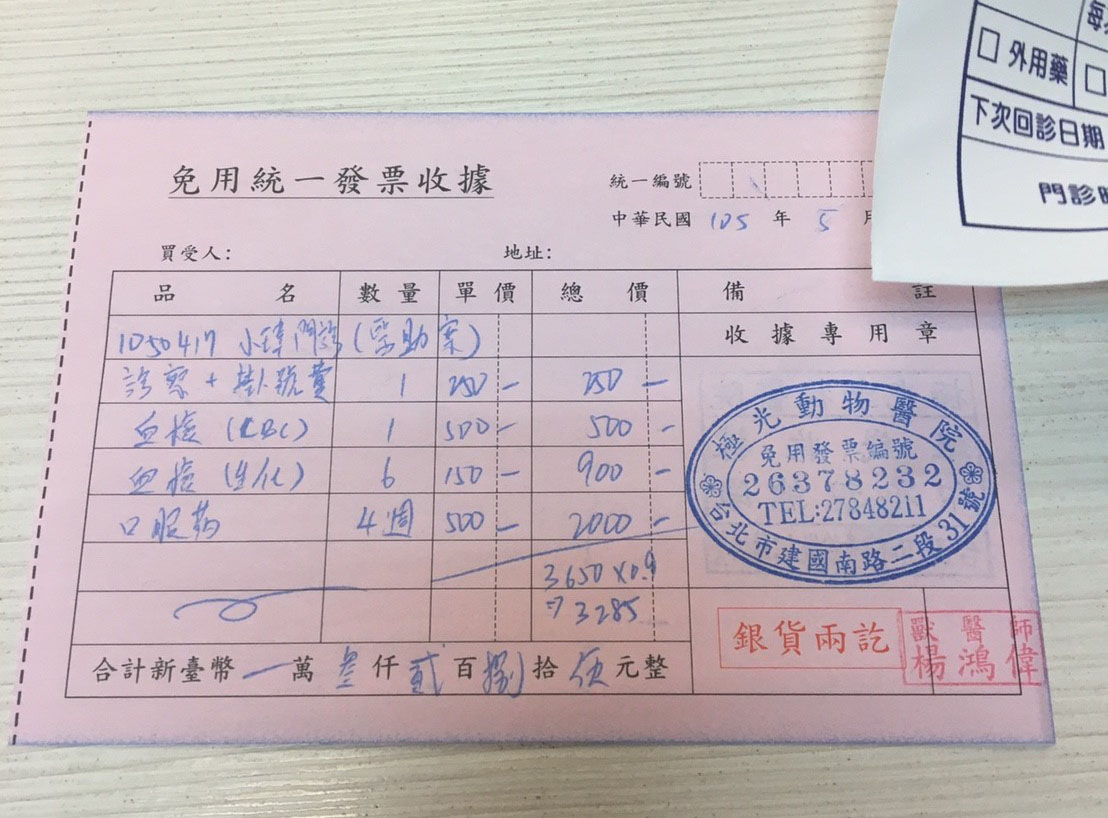 免用統一發票收據
統一編號
中華民國 105 年 5 月
買受人： 地址：
品名 數量 單價 總價 備註
1050417 小瑋門診 (認助案) 收據專用章
診察+掛號費 1 250- 250-
血檢 (CBC) 1 500- 500-
血檢 (生化) 6 150- 900-
口服葯 4週 500- 2000-
3650×0.9
⇒3285
合計新臺幣 萬 叁仟 貳百 捌拾 伍元整
極光動物醫院
免用發票編號
26378232
TEL:27848211
台北市建國南路二段31號
銀貨兩訖
獸醫師
楊鴻偉
每
□ 外用藥 □
下次回診日期
門診時